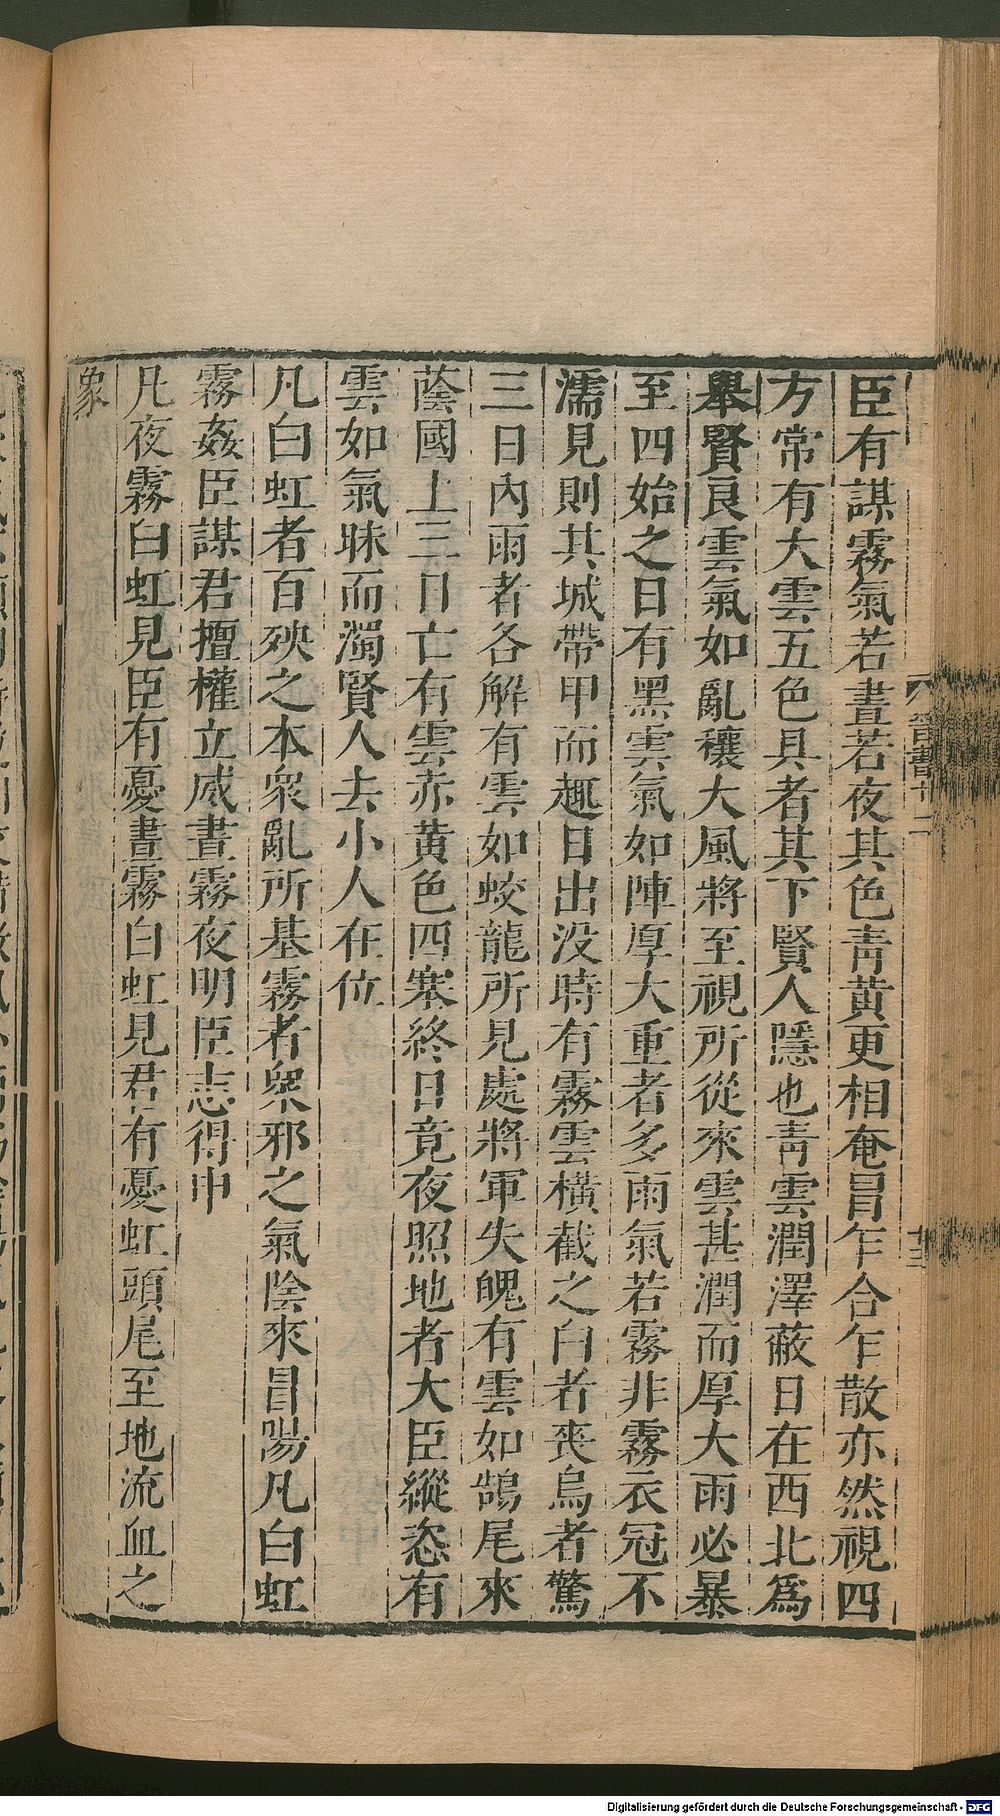 臣有謀霧氣若晝若夜其色靑黄更相奄冒乍合乍散亦然視四
方常有大雲五色具者其下賢人隱也靑雲潤澤蔽日在西北爲
舉賢良雲氣如亂穰大風將至視所從來雲甚潤而厚大雨必暴
至四始之日有黑雲氣如陣厚大重者多雨氣若霧非霧衣冠不
濡見則其城帶甲而趣日出没時有霧雲橫截之白者喪烏者驚
三日內雨者各解有雲如蛟龍所見處將軍失魄有雲如鵠尾來
蔭國上三日亡有雲赤黄色四塞終日竟夜照地者大臣縱恣有
雲如氣昧而濁賢人去小人在位
凡白虹者百殃之本衆亂所基霧者衆邪之氣陰來冒陽凡白虹
霧姦臣謀君擅權立威晝霧夜明臣志得申
凡夜霧白虹見臣有憂晝霧白虹見君有憂虹頭尾至地流血之
象
晉書十二
十三
Digitalisierung gefördert durch die Deutsche Forschungsgemeinschaft - DFG